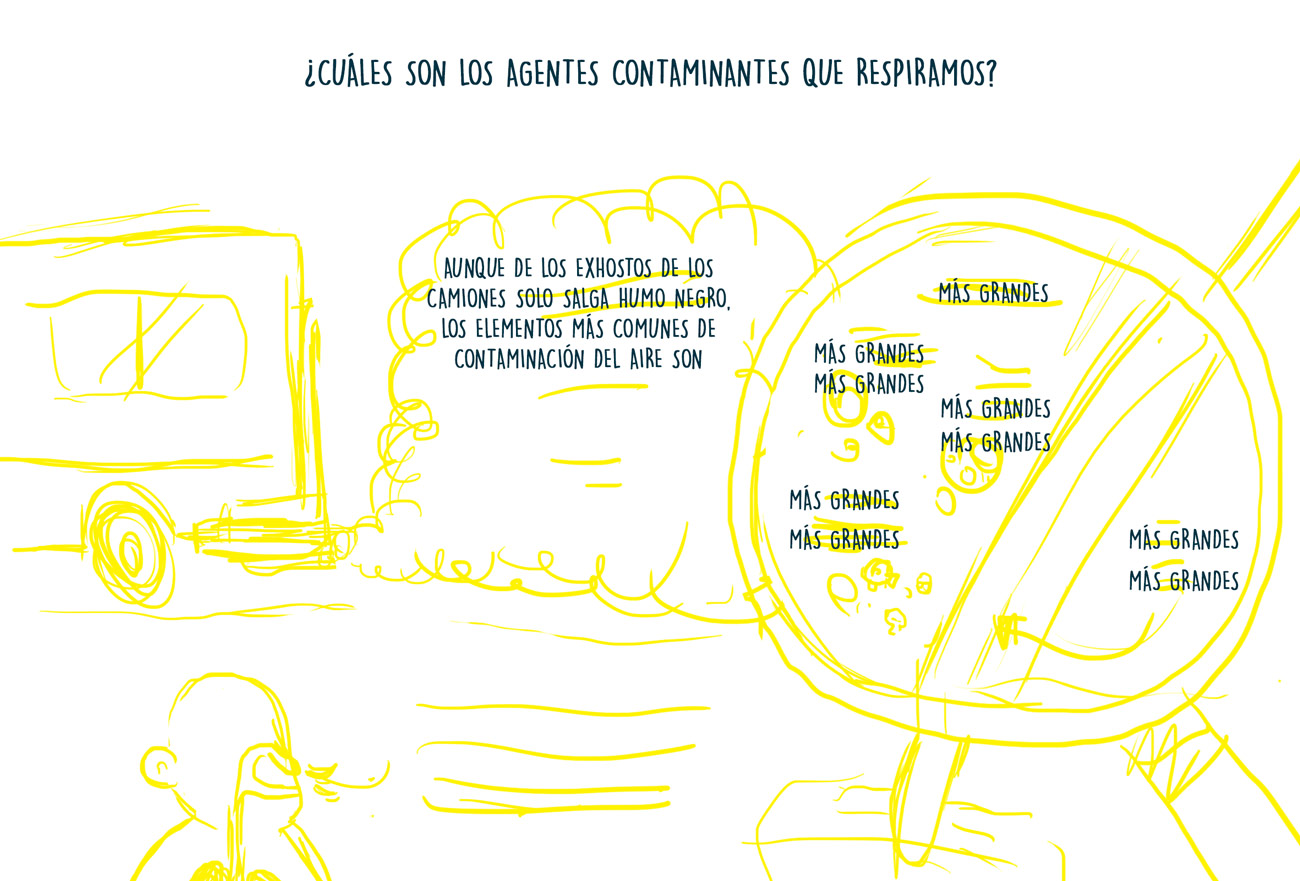 ¿CUÁLES SON LOS AGENTES CONTAMINANTES QUE RESPIRAMOS?
AUNQUE DE LOS EXHOSTOS DE LOS
CAMIONES SOLO SALGA HUMO NEGRO,
LOS ELEMENTOS MÁS COMUNES DE
CONTAMINACIÓN DEL AIRE SON
MÁS GRANDES
MÁS GRANDES
MÁS GRANDES
MÁS GRANDES
MÁS GRANDES
MÁS GRANDES
MÁS GRANDES
MÁS GRANDES
MÁS GRANDES